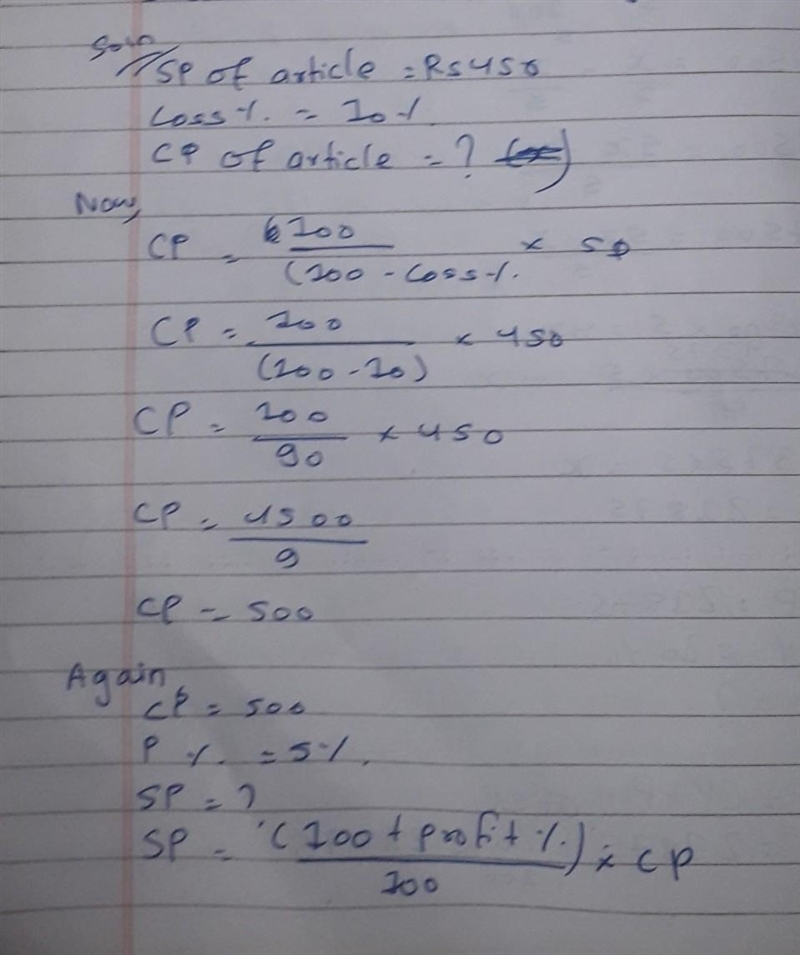 Soln
SP of article = Rs 450
Loss % = 10 %
CP of article = ?
Now,
CP = 100 / (100 - Loss % × SP
CP = 100 / (100 - 10) × 450
CP = 100 / 90 × 450
CP = 4500 / 9
CP = 500
Again
CP = 500
P % = 5 %.
SP = ?
SP = (100 + profit %) / 100 × CP